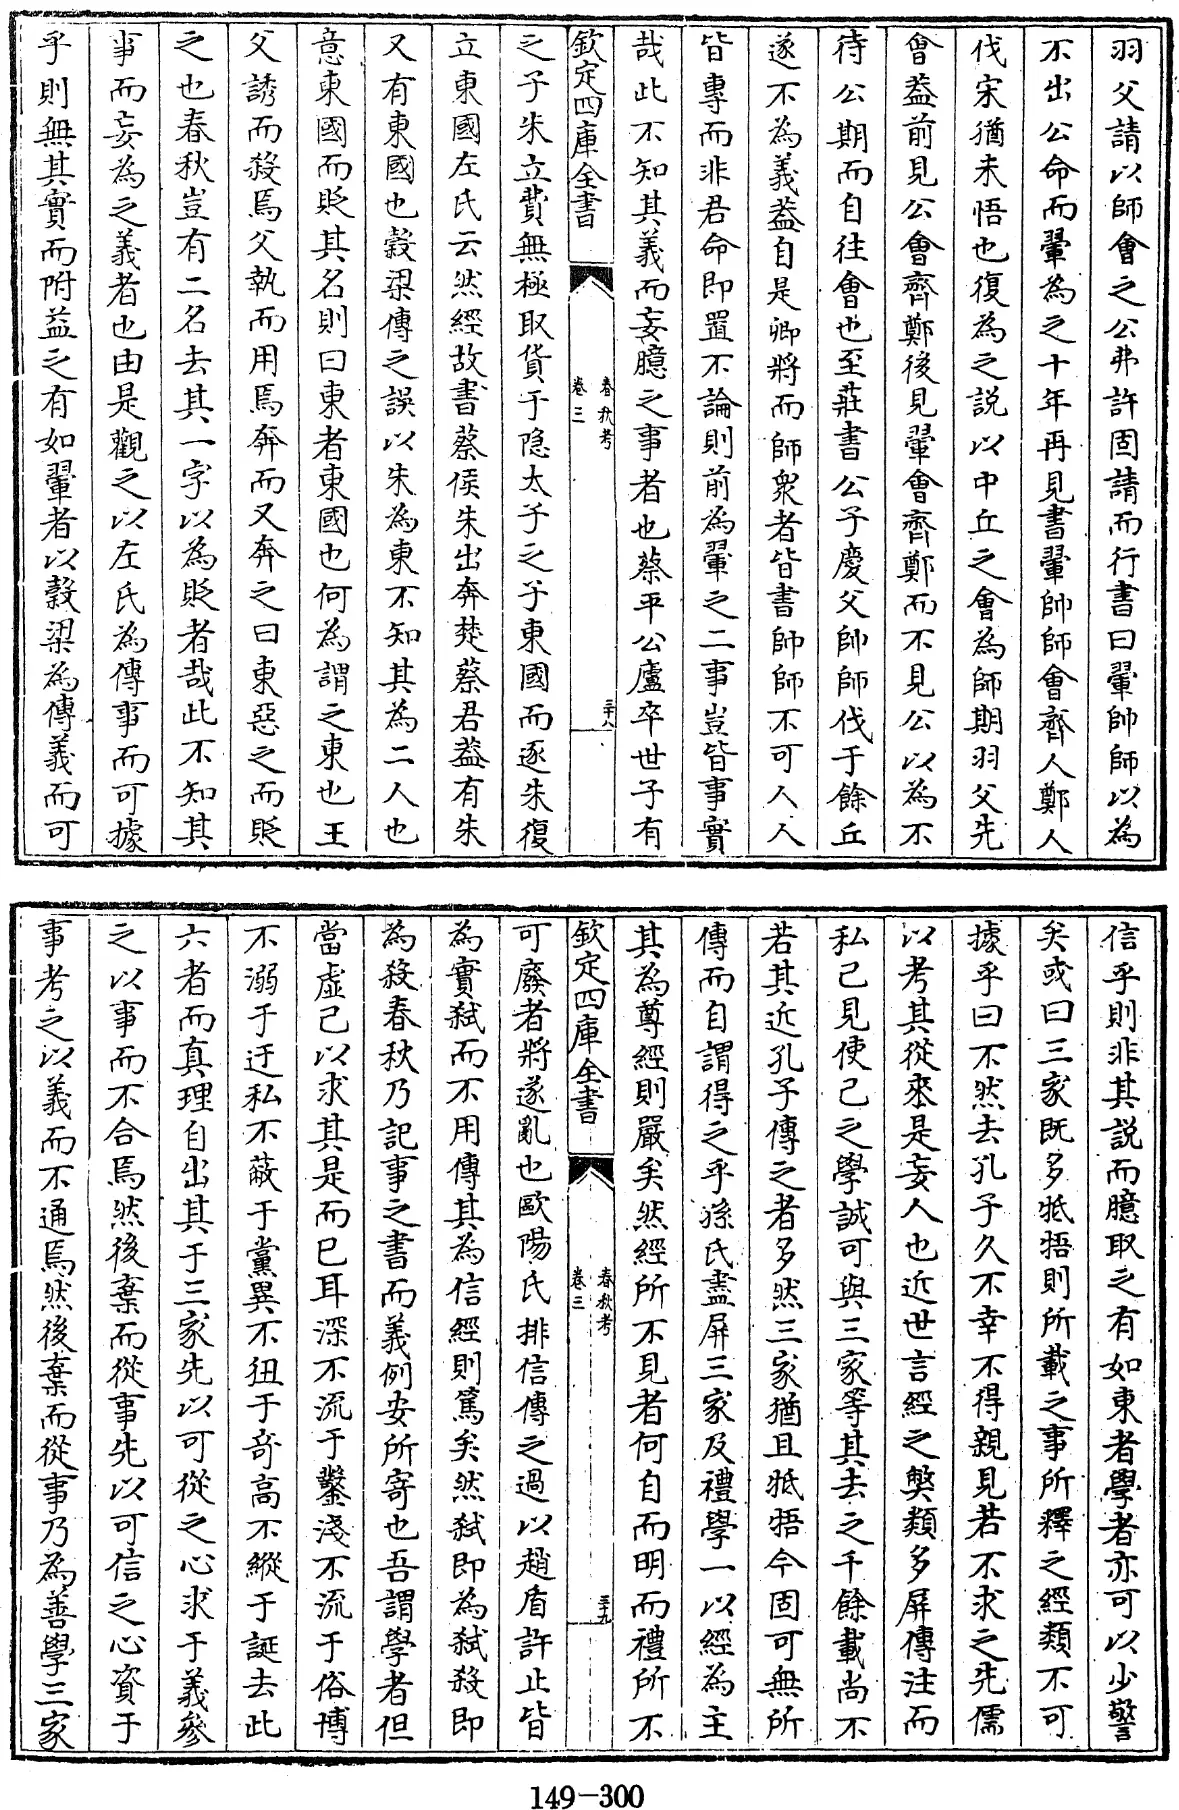 羽父請以師會之公弗許固請而行書曰翬帥師以為
不出公命而翬為之十年再見書翬帥師會齊人鄭人
伐宋猶未悟也復為之說以中丘之會為師期羽父先
會蓋前見公會齊鄭後見翬會齊鄭而不見公以為不
待公期而自往會也至莊書公子慶父帥師伐于餘丘
遂不為義蓋自是卿將而師衆者皆書帥師不可人人
皆專而非君命即置不論則前為翬之二事豈皆事實
哉此不知其義而妄臆之事者也蔡平公廬卒世子有
欽定四庫全書
春秋考
卷三
三十八
之子朱立費無極取貨于隐太子之子東國而逐朱復
立東國左氏云然經故書蔡侯朱出奔楚蔡君蓋有朱
又有東國也穀梁傳之誤以朱為東不知其為二人也
意東國而貶其名則曰東者東國也何為謂之東也王
父誘而殺焉父執而用焉奔而又奔之曰東惡之而貶
之也春秋豈有二名去其一字以為貶者哉此不知其
事而妄為之義者也由是觀之以左氏為傳事而可據
乎則無其實而附益之有如翬者以穀梁為傳義而可
信乎則非其說而臆取之有如東者學者亦可以少警
矣或曰三家既多牴捂則所載之事所釋之經類不可
據乎曰不然去孔子久不幸不得親見若不求之先儒
以考其從來是妄人也近世言經之獘類多屏傳注而
私已見使己之學誠可與三家等其去之千餘載尚不
若其近孔子傳之者多然三家猶且牴捂今固可無所
傳而自謂得之乎孫氏盡屏三家及禮學一以經為主
其為尊經則嚴矣然經所不見者何自而明而禮所不
欽定四庫全書
春秋考
卷三
三十九
可廢者將遂亂也歐陽氏排信傳之過以趙盾許止皆
為實弑而不用傳其為信經則篤矣然弑即為弑殺即
為殺春秋乃記事之書而義例安所寄也吾謂學者但
當虛己以求其是而已耳深不流于鑿淺不流于俗博
不溺于迂私不蔽于黨異不狃于奇高不縱于誕去此
六者而真理自出其于三家先以可從之心求于義參
之以事而不合焉然後棄而從事先以可信之心資于
事考之以義而不通焉然後棄而從事乃為善學三家
149-300